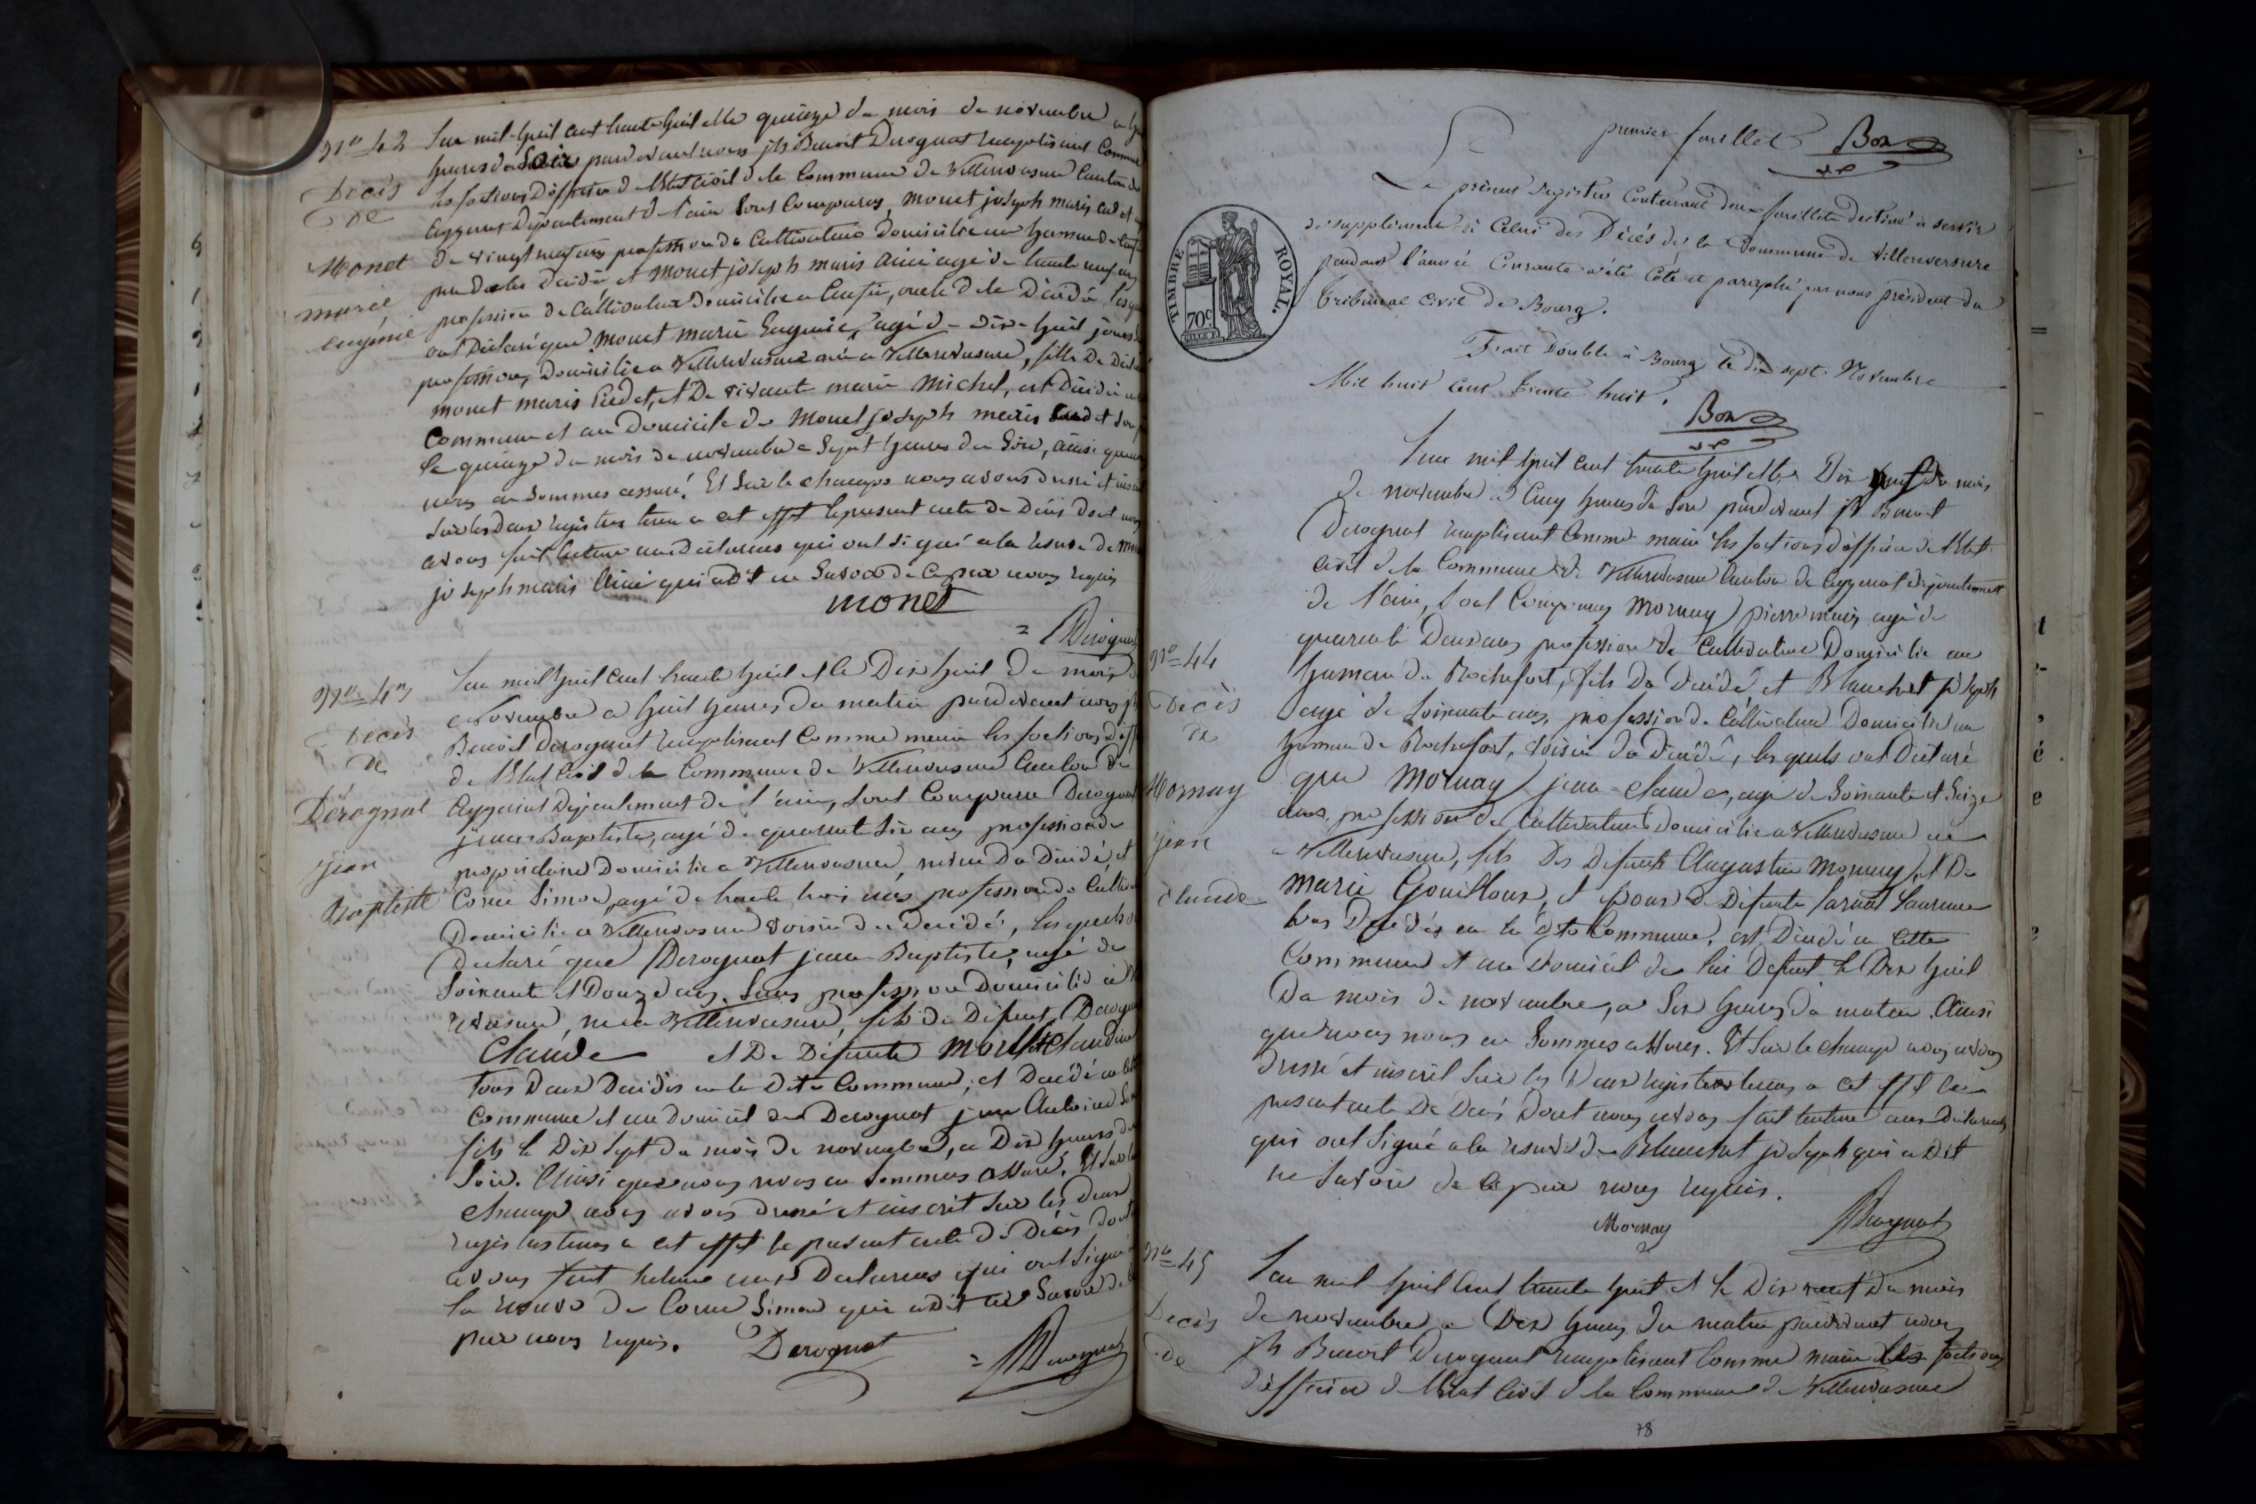 N° 42
Decès
De
Monet
marie
eugénie
L'an mil huit cent trente huit et le quinze du mois de novembre a
heures du Soir pardevant nous jh Benoit Derognat remplissant comme
les fonctions d'officier de l'Etat civil de la Commune de Villereversure Canton de
Ceyzeriat Département de l'ain Sont Comparus, monet joseph marie cadet
de vingt neuf ans profession de Cultivateur domicilié au hameau de
père de la décédée et monet joseph marie ainé agé de trente neuf ans
profession de Cultivateur domicilié a, oncle de la Décédée
ont Déclaré que monet marie Eugenie, agé de Dix-huit jours
profession, domicilié a Villereversure né a Villereversure, fille de
monet marie Cadet, et De vivante marie Michel, est Décédée
Commune et au Domicile de Monet joseph marie Cadet Son
le quinze du mois de novembre a Sept heures du Soir, ainsi que nous
nous en Sommes assuré. Et Sur le champ nous avons dressé et
Sur les deux registres tenu a cet effet le présent acte de Décès dont nous
avons fait lecture aux déclarans qui ont signé a la reserve de
joseph marie ainé qui a dit ne Savoir de ce par nous requis
monet
Derognat
N° 43
Decès
De
Dérognat
jean
Baptiste
L'an mil huit cent trente huit et le Dix huit Du mois
Novembre a huit heures du matin pardevant nous jh
Benoit Derognat remplissant Comme maire les fonctions
de l'Etat Civil de la Commune de Villereversure Canton de
Ceyzeriat Département de l'ain, Sont Comparus Derognat
jean Baptiste, agé de quarante Six ans profession de
propriétaire Domicilié a Villereversure, neveu du Décédé, et
Corne Simon, agé de trente trois ans profession de
Domicilié a Villereversure voisin du décédé, lesquels
Declaré que Derognat jean Baptiste, agé de
Soixante et Douze ans, Sans profession Domicilié a
reversure, né a Villereversure, fils de Défunt Derognat
Claude et De Défunte Claudine
tous Deux Décédés en la Dite Commune, et Décédé en
Commune et au domicil de Derognat jean Antoine Son
fils le Dix Sept du mois de novembre, a Dix heures du
Soir. Ainsi que nous nous en Sommes assuré. Et Sur le
champ nous avons dressé et inscrit Sur les deux
registres tenus a cet effet le présent acte de Décès dont
avons fait lecture aux Declarans qui ont Signé
la reserve de Corne Simon qui a Dit ne Savoir de
par nous requis. Derognat
Derognat
premier feuillet Bon
Le présent registre Contenant deux feuillets destiné à servir
de supplément à Celui des Décès de la Commune de Villereversure
pendant l'année Courante a été Coté et paraphé par nous président du
tribunal civil de Bourg.
Fait Double à Bourg le dix sept Novembre
Mil huit cent trente huit.
Bon
TIMBRE ROYAL.
70c
N° 44
Decès
De
Mornay
jean
claude
L'an mil huit cent trente huit et le Dix huit du mois
de novembre a Cinq heures du Soir pardevant jh Benoit
Derognat remplissant Comme maire les fonctions d'officier de l'Etat
civil de la Commune de Villereversure Canton de Ceyzeriat département
de l'ain, Sont Comparus Mornay pierre marie, agé de
quarante Deux ans profession de Cultivateur Domicilié au
hameau de Rochefort, fils du Décédé et Blanchet joseph
agé de Soixante ans, profession de Cultivateur Domicilié au
hameau de Rochefort, voisin du Décédé, lesquels ont Déclaré
que Mornay jean-claude, agé de Soixante et Seize
ans, profession de Cultivateur Domicilié a Villereversure né
a Villereversure, fils Des Defunts Augustin Mornay, et De
marie Gouilloux, et époux de Défunte Laurence
tous Décédés en la dite Commune, est Décédé en Cette
Commune et au domicil de lui Defunt le Dix huit
Du mois de novembre, a Six heures du matin. Ainsi
que nous nous en Sommes assurés. Et Sur le champ nous avons
dressé et inscrit Sur les Deux registres tenus a cet effet le
présent acte De Decès Dont nous avons fait lecture aux Declarans
qui ont Signé a la reserve de Blanchet joseph qui a Dit
ne Savoir de ce par nous requis.
Mornay
Derognat
N° 45
Decès
de
L'an mil huit Cent trente huit et le Dix neuf Du mois
de novembre a Dix heures Du matin pardevant nous
jh Benoit Derognat remplissant Comme maire les fonctions
d'officier de l'Etat Civil de la Commune de Villereversure
78